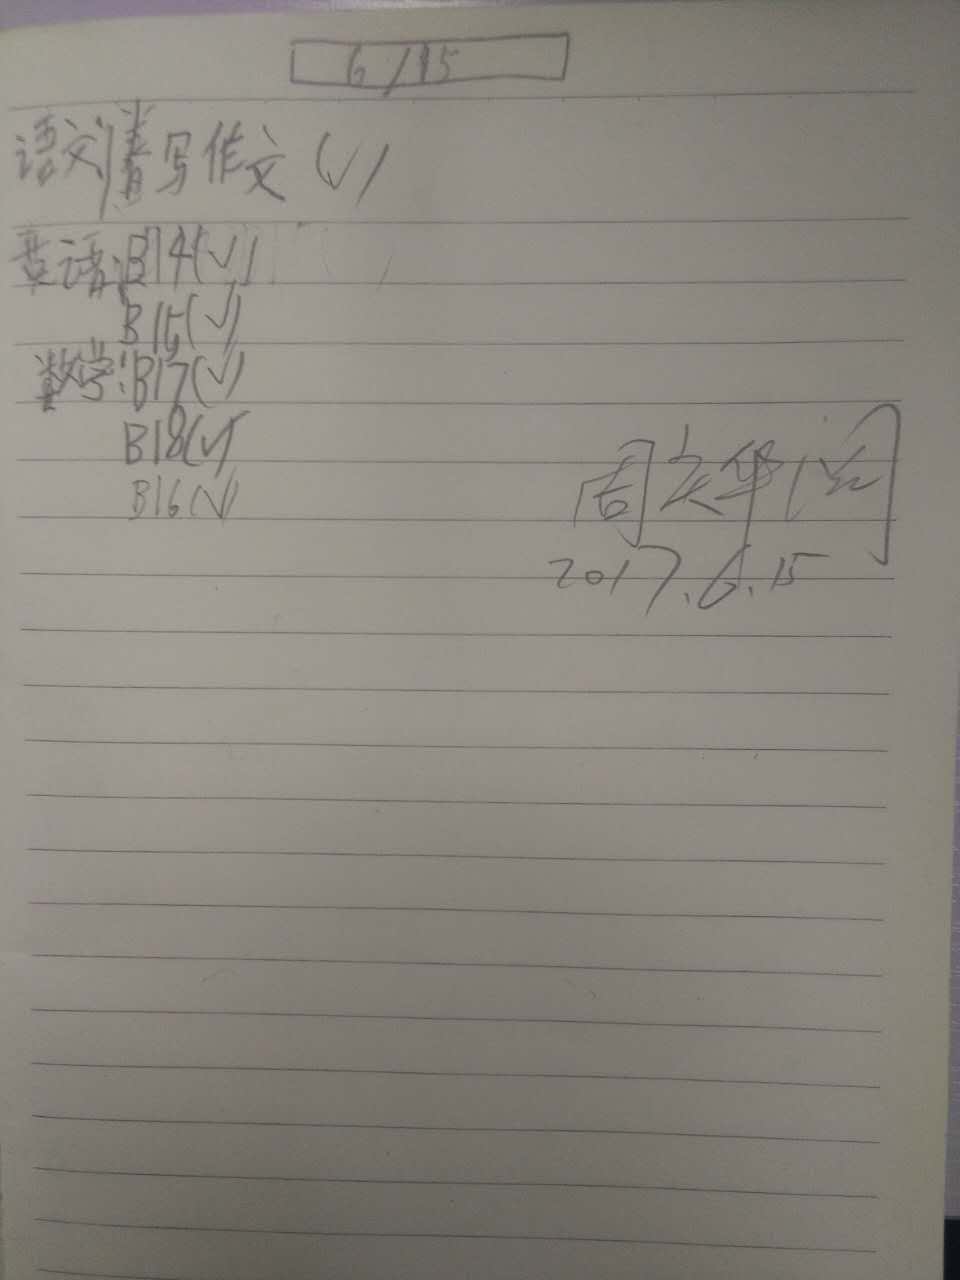 6/15
语文:清写作文(√)
英语:B14(√)
B15(√)
数学:B17(√)
B18(√)
B16(√)
周庆华 阅
2017.6.15